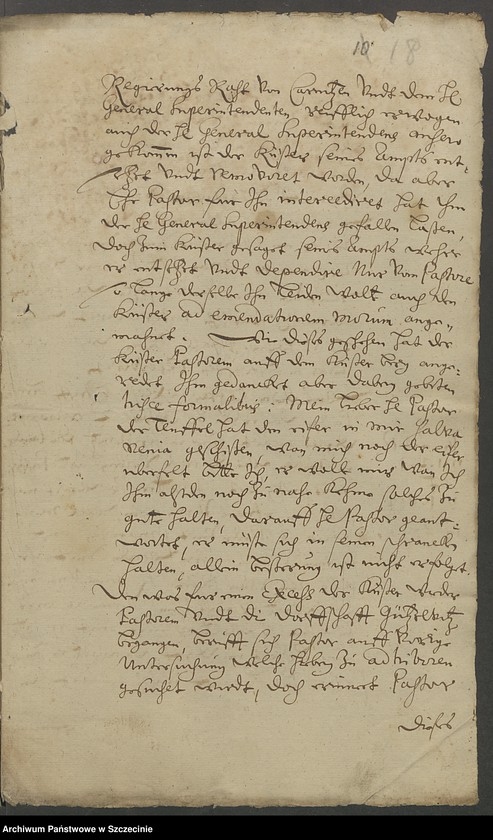 10 18
Regierungs Raht von Carnitzen undt dem H.
General Superintendenten reifflich erwogen
auch der H. General Superintendens anhero
gekommen ist der Küster seines Ampts ent-
setzet undt removiret worden, da aber
Ehr Pastor für Ihn intercediret hat Ihm
der H. General Superintendens gefallen laßen,
doch zum Küster gesaget seines Ampts wehre
er entsetzt undt dependire Nur vom Pastore
so lange derselbe Ihn leiden wolt auch den
Küster ad emendationem morum ange-
mahnet. Wie dieses geschehen hat der
Küster Pastorem auff dem ange-
redet, Ihm gedancket aber dabey gebeten
hisce formalibus: Mein lieber H. Pastor
der Teuffel hat den eifer in mir salva
venia geschißen, wan mich noch der eifer
überfelt bitte Ich, er wolle mir wan Ich
Ihm alsden noch zu nahe kehme solches zu
gute halten, darauff H. Pastor geant-
wortet, er müste sich in seinen schrancken
halten, allein beßerung ist nicht erfolget.
Den was für einen Excess der Küster wieder
Pastorem undt die Dorffschafft Gützelvitz
begangen, berufft sich Pastor auff vorige
Untersuchung welche hieben zu adhibiren
gesuchet wirdt, doch erinnert Pastor
dieses
Archiwum Państwowe w Szczecinie